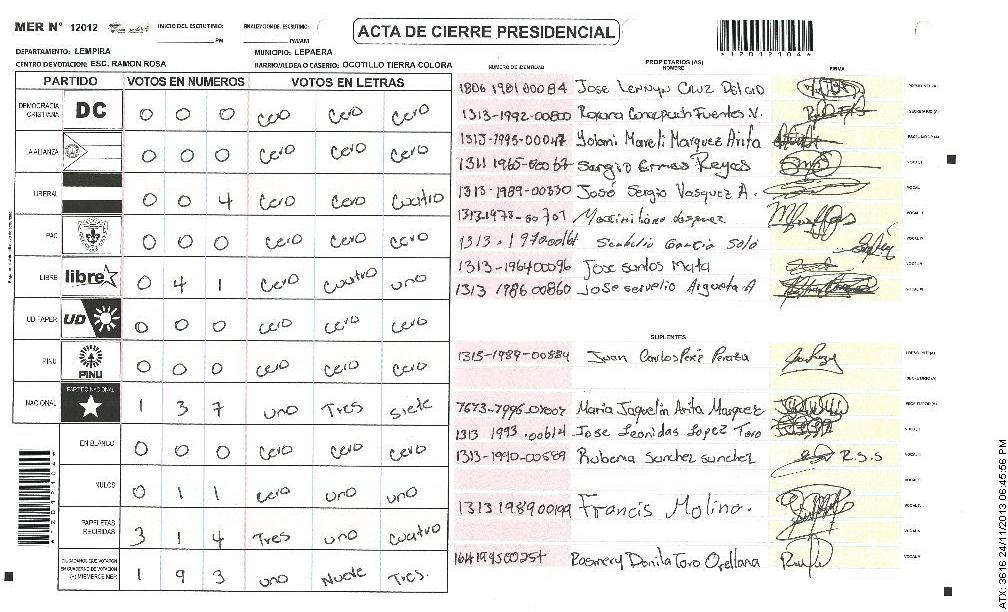 MER N° 12012
INICIO DEL ESCRUTINIO: PM
FINALIZACION DEL ESCRUTINIO: PM/AM
ACTA DE CIERRE PRESIDENCIAL
DEPARTAMENTO: LEMPIRA
MUNICIPIO: LEPAERA
CENTRO DE VOTACION: ESC. RAMON ROSA
BARRIO/ALDEA O CASERIO: OCOTILLO TIERRA COLORA
PARTIDO VOTOS EN NUMEROS VOTOS EN LETRAS
DEMOCRACIA CRISTIANA DC 0 0 0 cero cero cero
ALIANZA 0 0 0 cero cero cero
LIBERAL 0 0 4 cero cero cuatro
PAC 0 0 0 cero cero cero
LIBRE libre 0 4 1 cero cuatro uno
UD FAPER UD 0 0 0 cero cero cero
PINU PINU 0 0 0 cero cero cero
NACIONAL PARTIDO NACIONAL 1 3 7 uno Tres siete
EN BLANCO 0 0 0 cero cero cero
NULOS 0 1 1 cero uno uno
PAPELETAS RECIBIDAS 3 1 4 Tres uno cuatro
CIUDADANOS QUE VOTARON EN CUADERNO DE VOTACION (+) MIEMBROS MER 1 9 3 uno Nueve Tres.
NUMERO DE IDENTIDAD
PROPIETARIOS (AS)
NOMBRE
FIRMA
1806 1981 00084 Jose Lennyn Cruz Delcid
1313-1992-00800 Roxana Concepción Fuentes V.
1313-1995-00047 Yolani Mareli Marquez Arita
1311 1965-00067 Sergio Ermas Reyes
1313-1989-00330 José Sergio Vasquez A.
1313-1978-00701 Maximiliano Vasquez
1313-1970 Garcia Soto
1313-1964 00096 Jose santos Mata
1313 1986 00860 Jose servelio Argueta A
SUPLENTES
1315-1989-00884 Juan Carlos Perez Peraza
Maria Jaquelin Arita Marquez
1313 1993-00614 Jose Leonidas Lopez Toro
1313-1990-00589 Rubenia Sanchez sanchez R.S.S
1313 1989 00199 Francis Molina.
Rosmery Donila Toro Orellana
*A12012104*
ATX: 3616 24/11/2013 06:45:56 PM